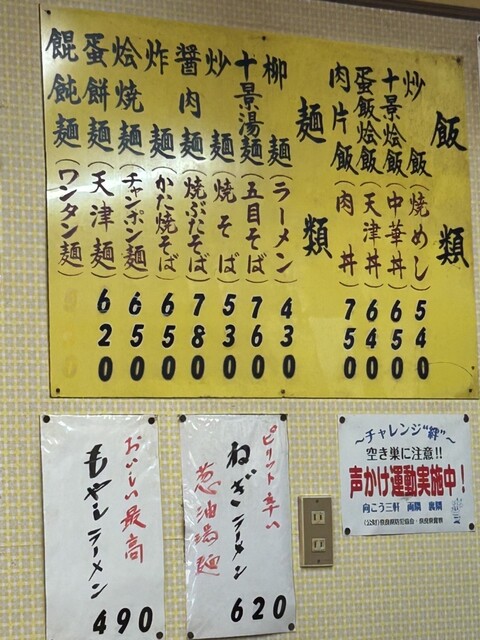 飯類
炒飯(焼めし)540
十景燴飯(中華丼)650
蛋飯燴飯(天津丼)640
肉片飯(肉丼)750
麵類
柳麵(ラーメン)430
十景湯麵(五目そば)760
炒麵(焼そば)530
醬肉麵(焼ぶたそば)780
炸麵(かた焼そば)650
燴焼麵(チャンポン麵)650
蛋餅麵(天津麵)620
餛飩麵(ワンタン麵)
ピリット辛い
ねぎラーメン
葱油湯麺
620
おいしい最高
もやしラーメン
490
～チャレンジ“絆”～
空き巣に注意!!
声かけ運動実施中！
向こう三軒 両隣 裏隣
(公財)奈良県防犯協会・奈良県警察